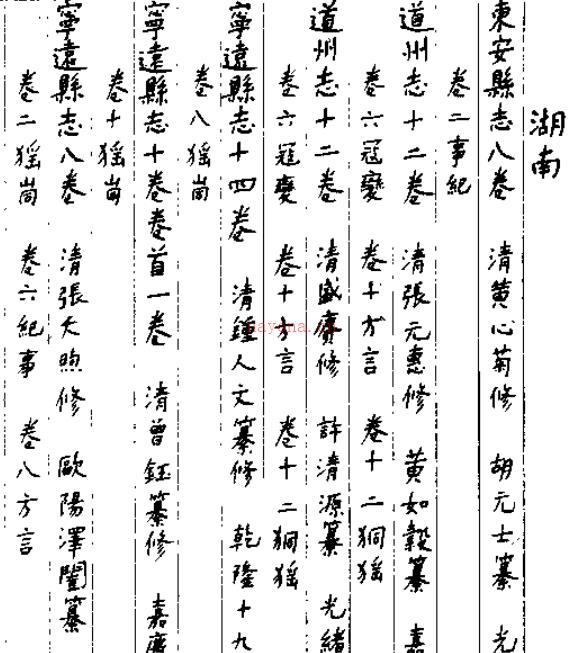 湖南
東安縣志八卷 清黄心菊修 胡元士纂 光
卷二事紀
道州志十二卷 清張元惠修 黄如穀纂 嘉
卷六冠變 卷十方言 卷十二狪猺
道州志十二卷 清盛賡修 許清源纂 光緒
卷六冠變 卷十方言 卷十二狪猺
寧遠縣志十四卷 清鍾人文纂修 乾隆十九
卷八猺峝
寧遠縣志十卷卷首一卷 清曾鈺纂修 嘉慶
卷十猺峝
寧遠縣志八卷 清張大煦修 歐陽澤闓纂
卷二猺峝 卷六紀事 卷八方言